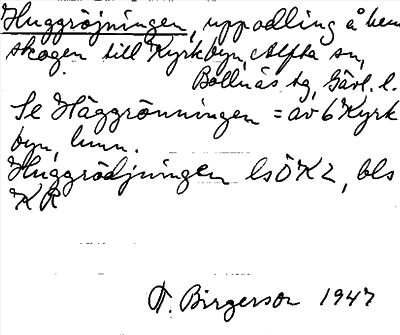 Huggröjningen, uppodling å hem
skogen till Kyrkbyn, Alfta sn,
Bollnäs tg, Gävl. l.
Se Häggrönningen = av 6 Kyrk
byn, hmn.
Huggrödjningen ls ÖK2, bls
KR
T. Birgerson 1947